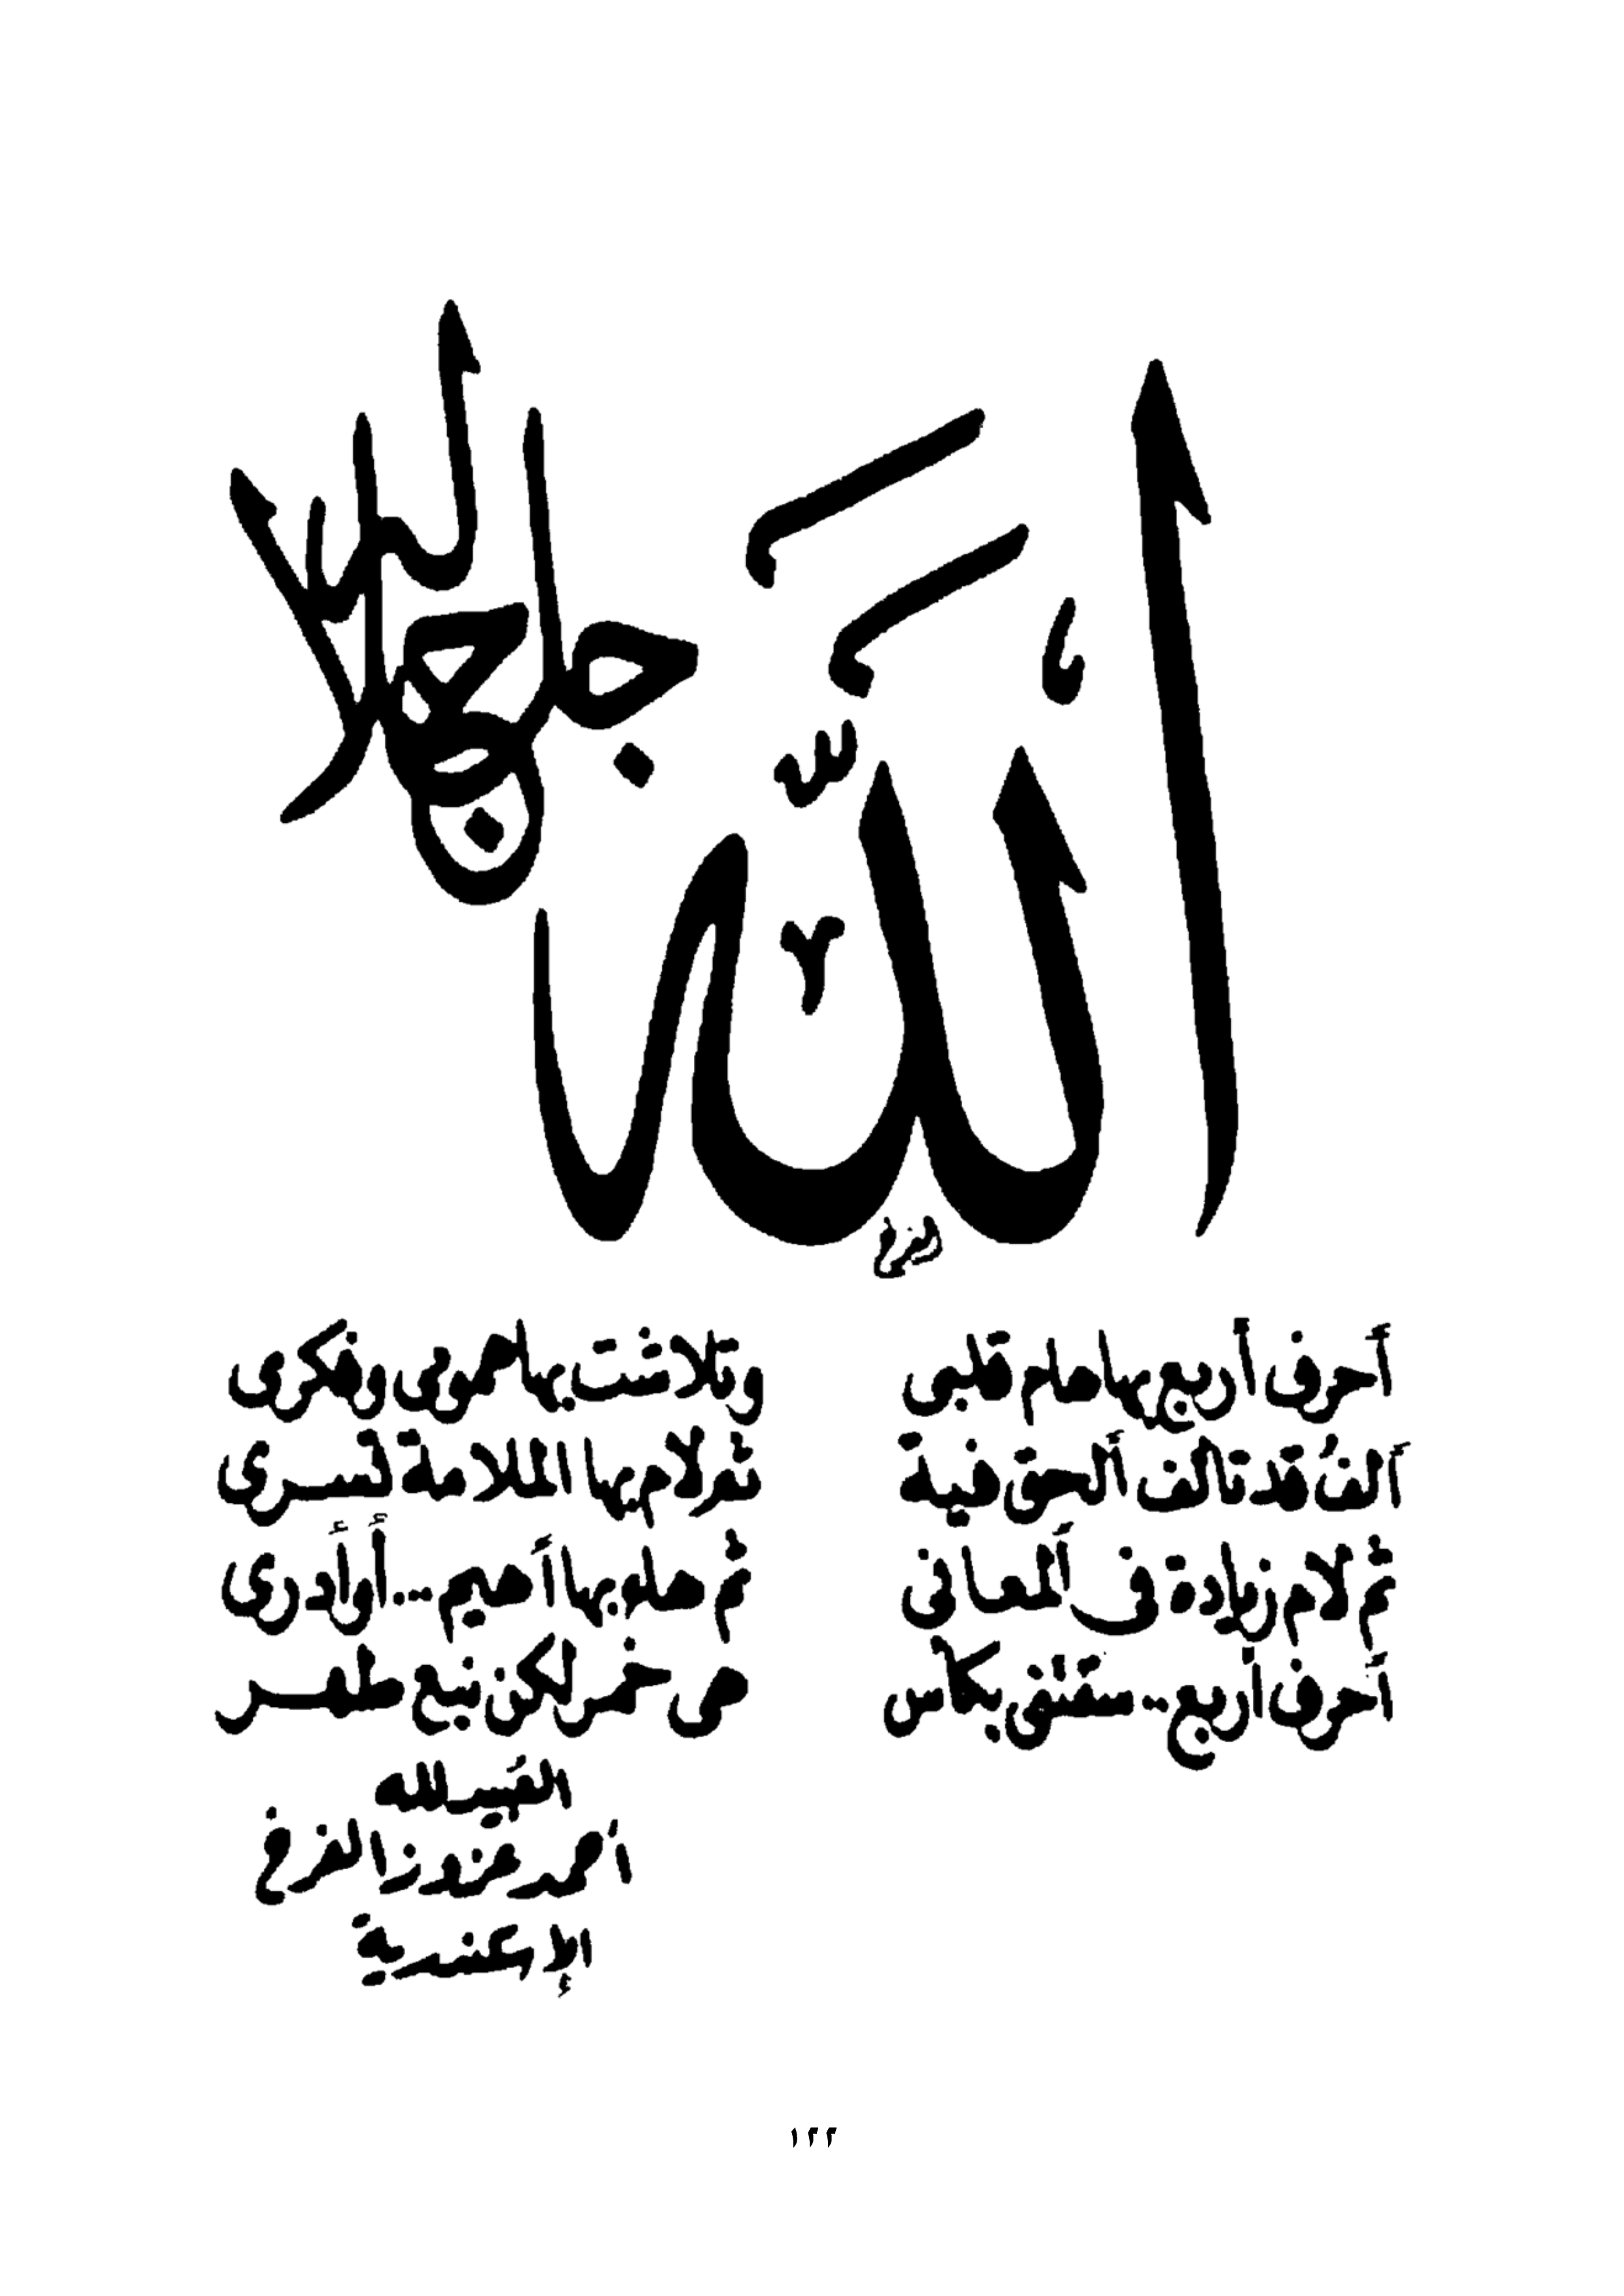 الله جل جلاله
أحرف أربع بها هام قلبى وتلاشت بها همومى وفكرى
ألف قد تألف الحق فيه ثم لام بها الملامة تسرى
ثم لام زيادة فى المعانى ثم هاء بها أهيم .. أو أدرى
أحرف أربع .. ستسقى بكأس من خمر لكن نبع طهر
الفقير لله
أحمد الغزخ
الإسكندرية
١٢٢